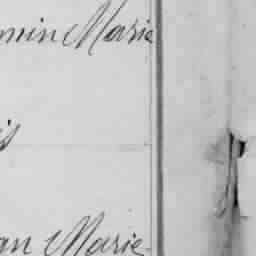 min Marie
is
an Marie